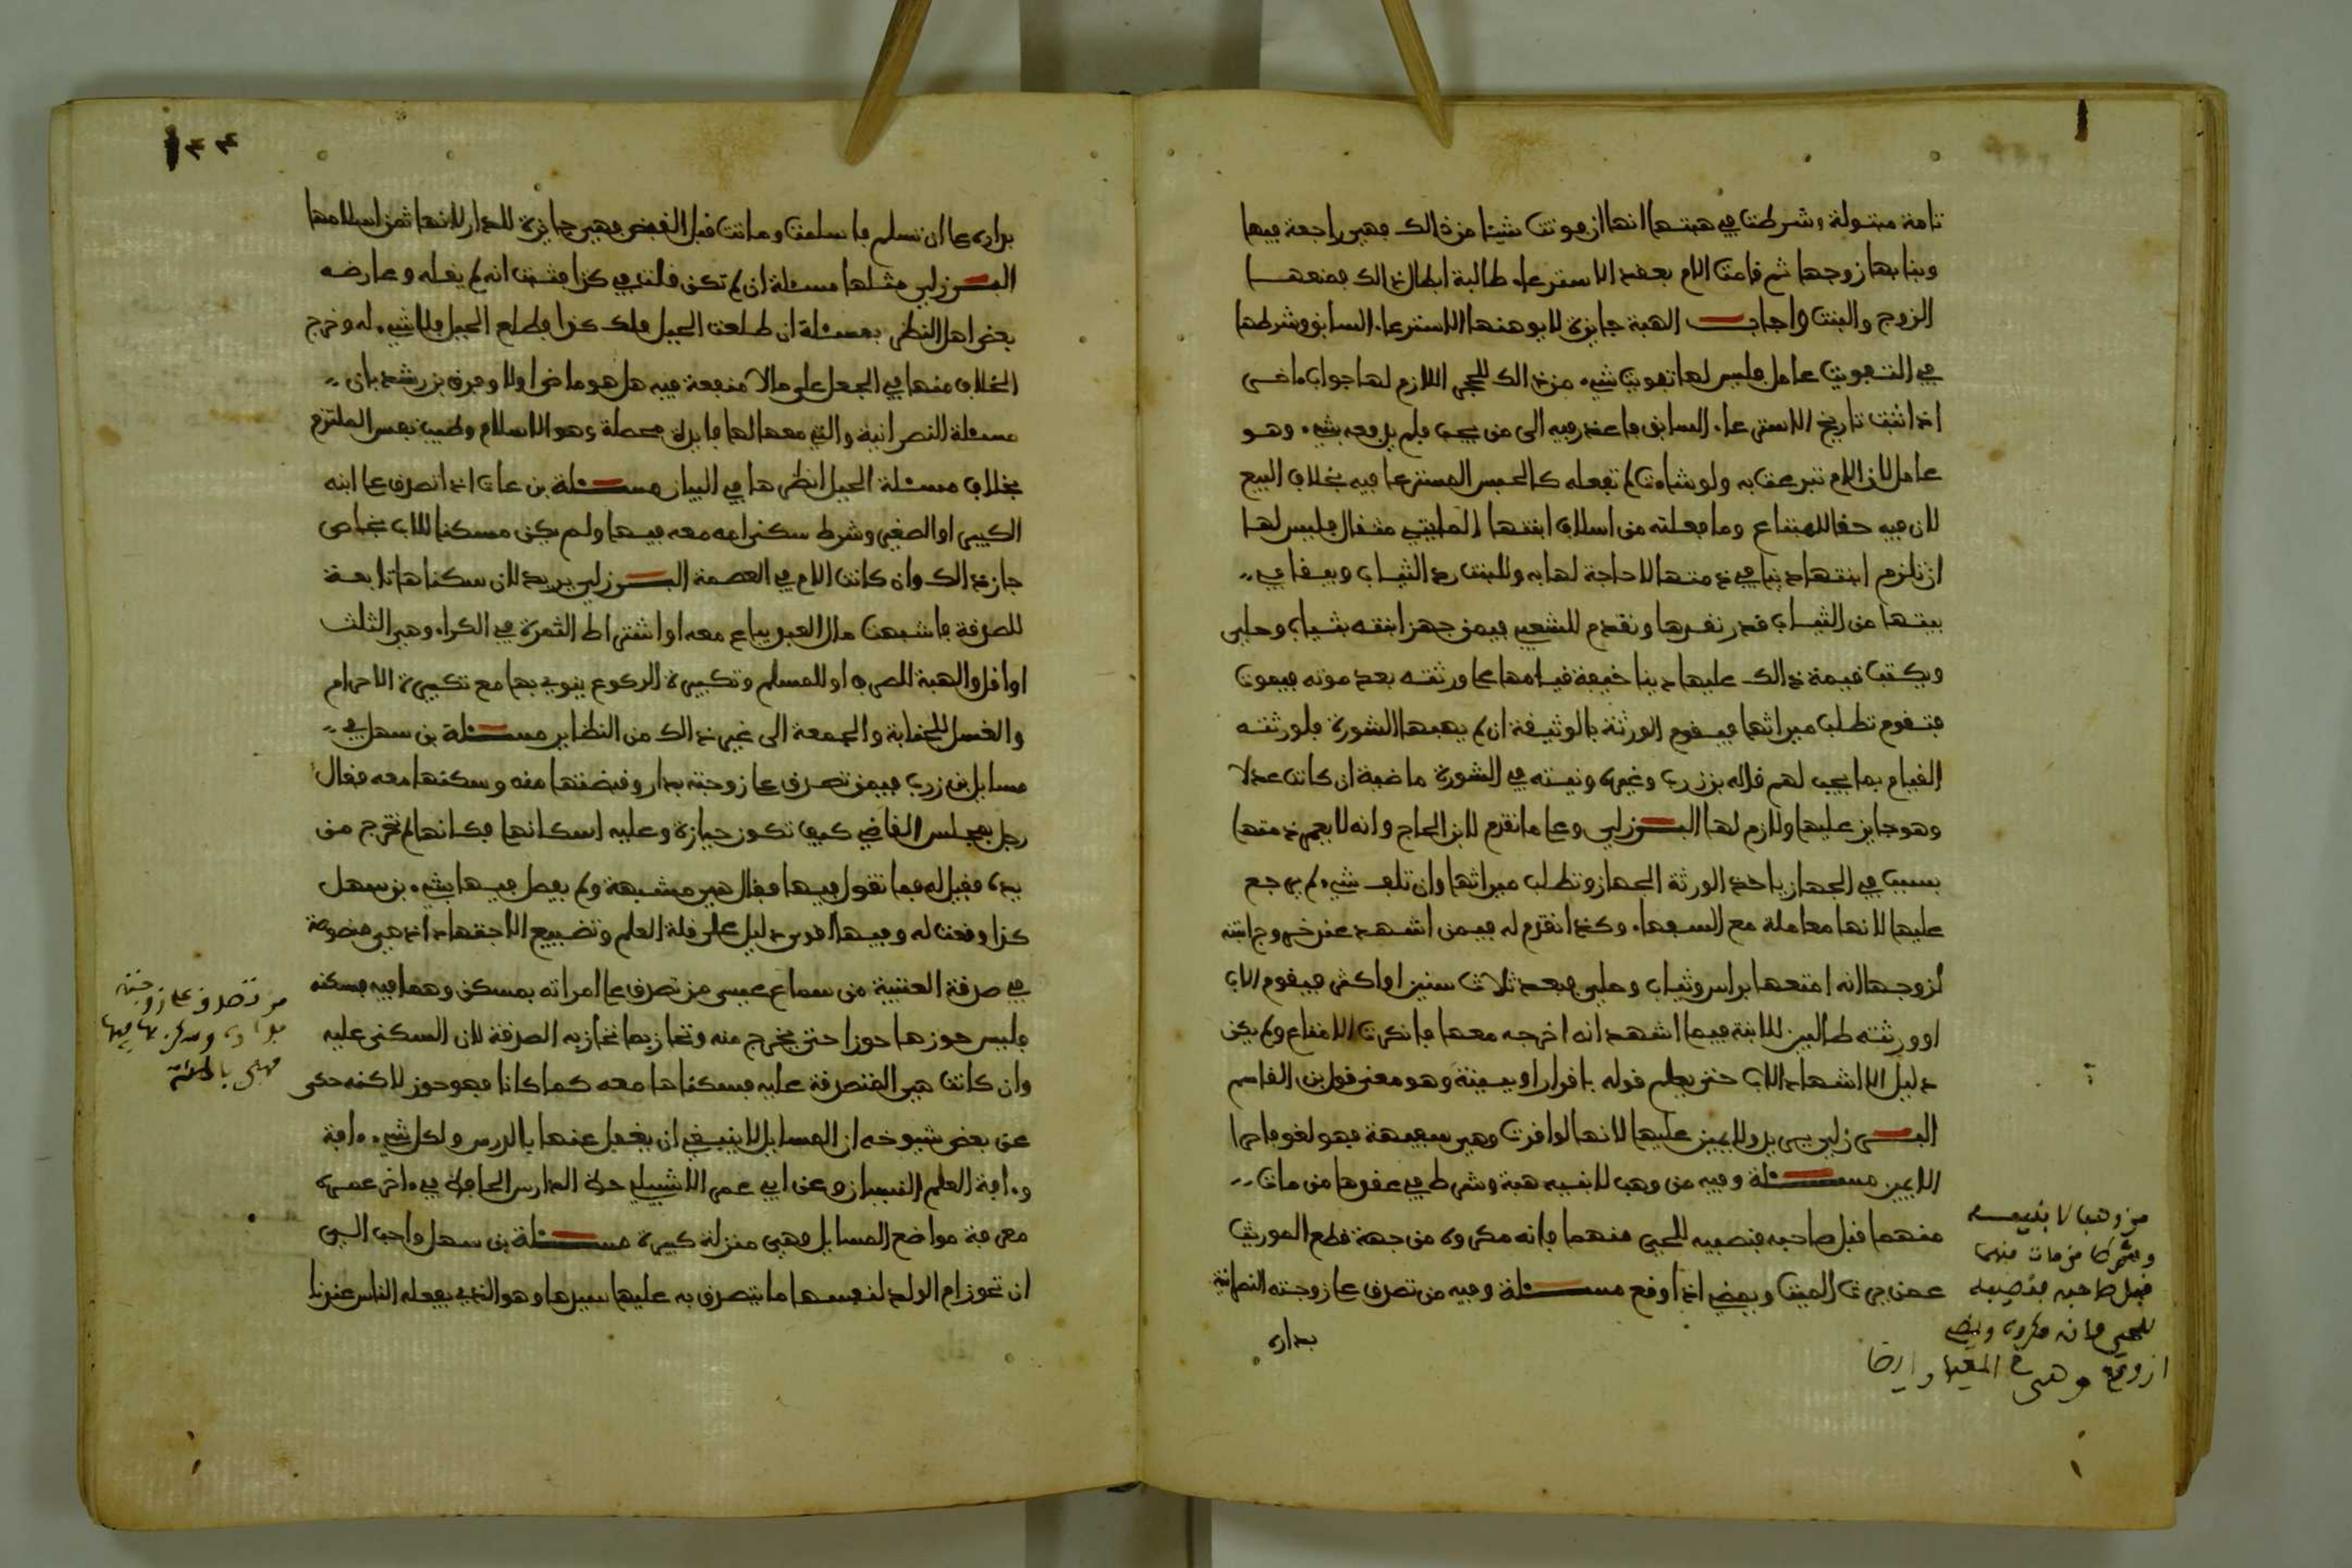 تامة مبتولة وشرطت في هبتها انها ان فوتت شيئا من ذالك فهي راجعة فيها
وبنا بها زوجها ثم قامت الام بعقد الاسترعاء طالبة ابطال ذالك فمنعها
الزوج والبنت واجاب الهبة جايزة لا يوهنها الاسترعاء السابق وشرطها
في التفويت عامل فليس لها تفويت شيء من ذالك للحجر اللازم لها جواب اخر
اذا ثبت تاريخ الاسترعاء السابق ما عقد فيه الى من يجب فلم يدفعه بشيء وهو
عامل لان الام تبرعت به ولو شاءت لم تفعله كالحبس المسترعا فيه بخلاف البيع
لان فيه حقا للمبتاع وما فعلته من اسلاف ابنتها المايتي مثقال فليس لها
ان تلزم ابنتها دينا في ذمتها لا حاجة لها به وللبنت رد الثياب ويبقا في
بيتها من الثياب قدر نقدها وتقدم للشعبي فيمن جهز ابنته بثياب وحلي
ويكتب قيمة ذالك عليها دينا خيفة قيامها على ورثته بعد موته فيموت
فتقوم تطلب ميراثها فيقوم الورثة بالوثيقة ان لم يهبها الشورة فلورثته
القيام بما يجب لهم قاله بن زرب وغيره ونيته في الشورة ماضية ان كانت عدلا
وهو جايز عليها ولازم لها البرزلي وعلى ما تقدم لابن الحاج وانه لا يعمر ذمتها
بسبب في الجهاز ياخذ الورثة الجهاز وتطلب ميراثها وان تلف شيء لم يرجع
عليها لانها معاملة مع السفهاء وكذا تقدم له فيمن اشهد عند خروج ابنته
لزوجها انه امتعها براس وثياب وحلي فبعد ثلاث سنين او اكثر فيقوم الاب
او ورثته طالبين للابنة فيما اشهد انه اخرجه معها فانكرت الامتاع ولم يكن
دليل الا اشهاد الاب حتى يعلم قوله باقرار او ببينة وهو معنى قول بن القاسم
البرزلي يريد ولا يمين عليها لانها لو اقرت وهي سفيهة فهو لغو فاحرا
الايمين مسئلة وفيه من وهب لابنيه هبة وشرط في عقدها من مات
منهما قبل صاحبه فنصيبه للحي منهما فانه مكروه من جهة قطع الموريث
عمن يرث الميت ويمضي اذا وقع مسئلة وفيه من تصدق على زوجته النصرانية
بداره
من وهب لابنيه
وشرط من مات منهما
قبل صاحبه فنصيبه
للحي فانه مكروه ويمضي
ان وقع وهي في المعيار ايضا
بداره على ان تسلم فاسلمت وماتت قبل القبض فهي جايزة للدار لانها ثمن اسلامها
البرزلي مثلها مسئلة ان لم تكن قلت في كذا فثبت انه لم يقله وعارضه
بعض اهل النظر بمسئلة ان طلعت الجبل فلك كذا فطلع الجبل فلا شيء له وخرج
الخلاف منها في الجعل على مالا منفعة فيه هل هو ماض اولا وفرق بن رشد بان
مسئلة النصرانية والتي معها لها فايدة محصلة وهو الاسلام وطيب نفس الملتزم
بخلاف مسئلة الجبل انظرها في البيان مسئلة بن عات اذا تصدق على ابنه
الكبير او الصغير وشرط سكنى امه معه فيها ولم يكن مسكنا للاب بخاص
جاز ذالك وان كانت الام في العصمة البرزلي يريد لان سكناها تابعة
للصدقة فاشبهت مال العبد يباع معه او اشتراط الثمرة في الكراء وهي الثلث
او اقل والهبة للصرف او للمسلم وتكبيرة الركوع ينوي بها مع تكبيرة الاحرام
والغسل للجنابة والجمعة الى غير ذالك من النظاير مسئلة بن سهل في
مسايل بن زرب فيمن تصدق على زوجته بدار وقبضتها منه وسكنها معه فقال
رجل بمجلس القاضي كيف تكون حيازة وعليه اسكانها فكانها لم تخرج من
يده فقيل له فما تقول فيها فقال هي مشبهة ولم يفصل فيها بشيء بن سهل
كذا وقعت له وفيها اقوى دليل على قلة العلم وتضييع الاجتهاد اذ هي منصوصة
في صدقة العتبية من سماع عيسى من تصدق على امراته بمسكن وهما فيه فسكنه
فليس حوزها حوزا حتى يخرج منه وتحاز بما تحاز به الصدقة لان السكنى عليه
وان كانت هي المتصدقة عليه فسكناها معه كما كانا فهو حوز لاكنه حكى
عن بعض شيوخه ان المسايل لا ينبغي ان يغفل عنها بالدرس ولكل شيء ءافة
وءافة العلم النسيان وعن ابي عمر الاشبيلي حدة الدارس الحاجة في ءاخر عمره
معرفة مواضع المسايل فهي منزلة كبيرة مسئلة بن سهل واحب الي
ان تحوز ام الولد لنفسها ما يتصدق به عليها سيدها وهو الذي يفعله الناس عندنا
من تصدق على زوجته
بداره وسكن بها فيها
فهي باطلة